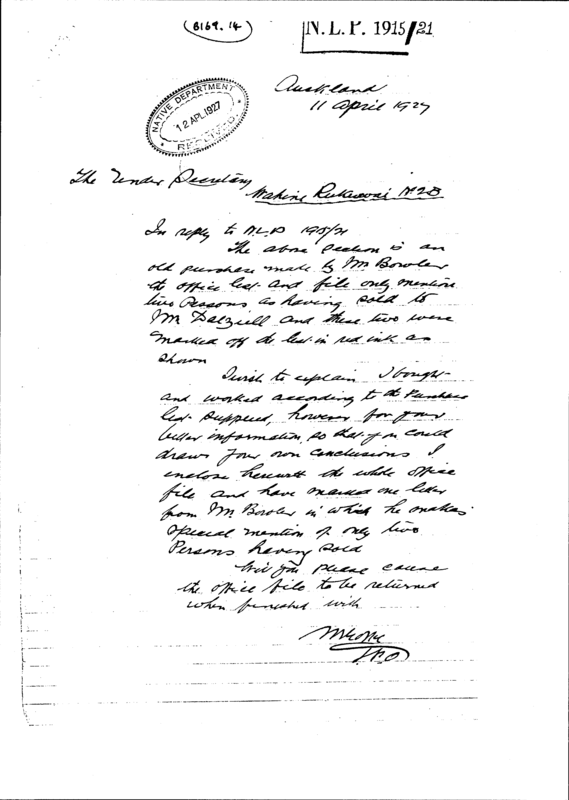 B169.14
N.L.P. 1915/21
Auckland
11 April 1927
NATIVE DEPARTMENT
12 APL 1927
RECEIVED
The Under Secretary
N2B
In reply to N.L.P 1915/21
The above Section is an
old purchase made by Mr Bowler
the office list and file only mention
two Persons as having sold to
Mr Dalziell and these two were
marked off the list in red ink as
shown
I wish to explain I bought
and worked according to the Purchase
list supplied, however for your
better information, so that you could
draw your own conclusions I
enclose herewith the whole office
file and have marked one letter
from Mr Bowler in which he makes
special mention of only two
Persons having sold
Will you please cause
the office file to be returned
when finished with